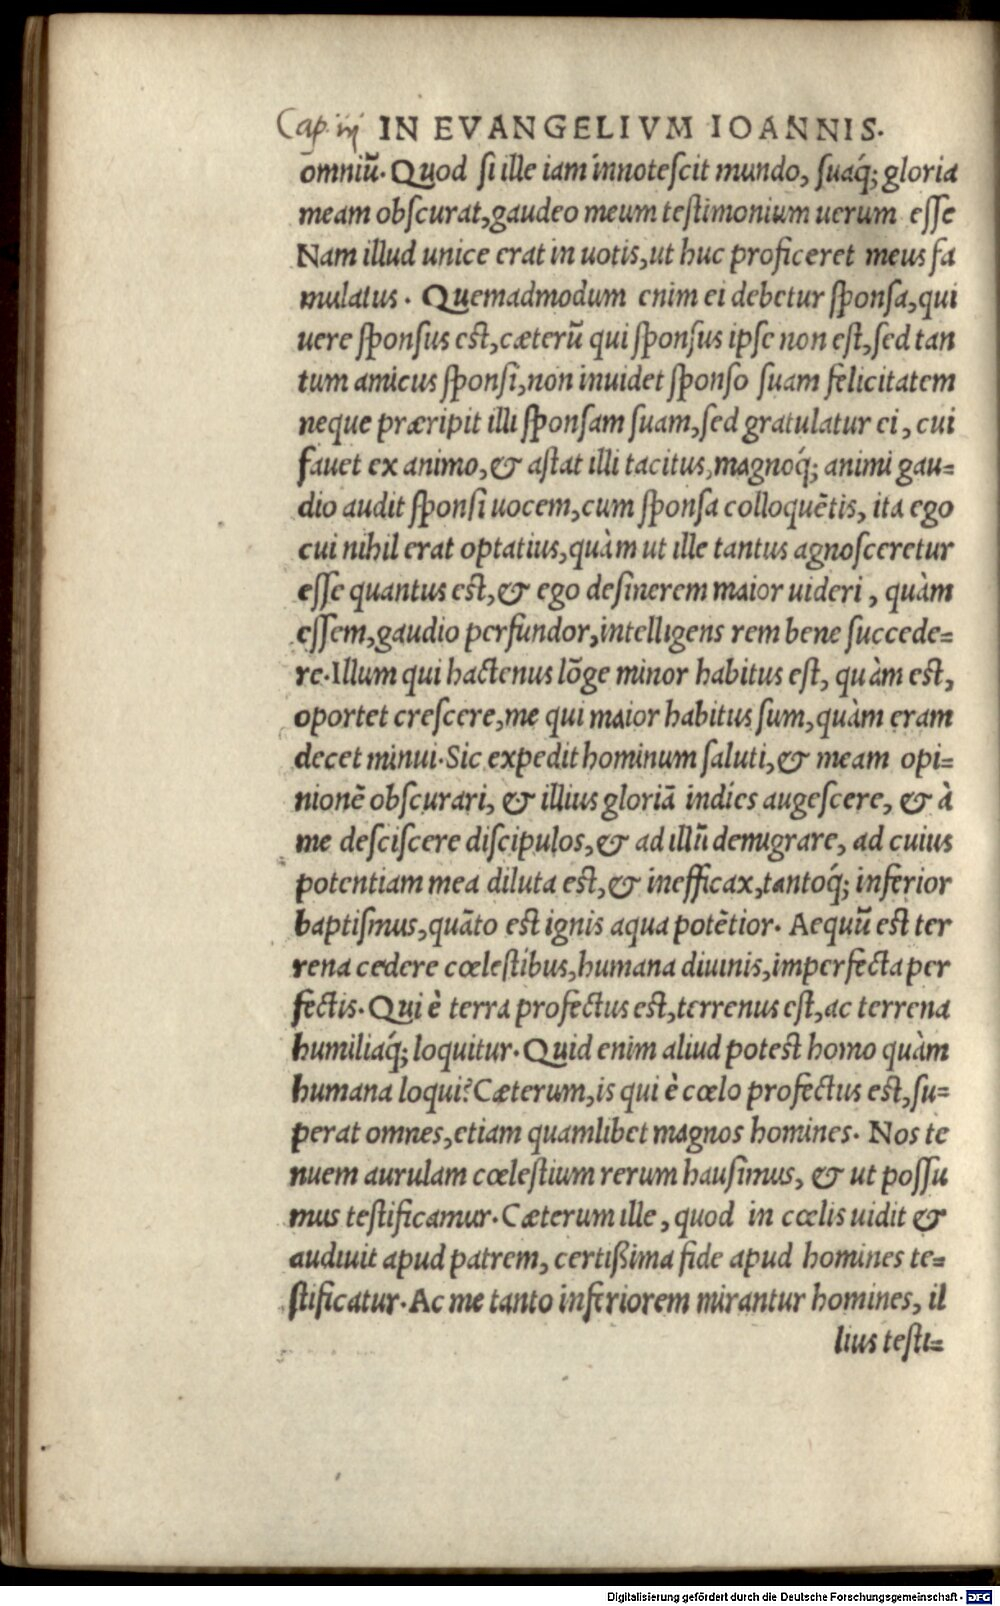 Cap. iij IN EVANGELIVM IOANNIS.
omniũ. Quod ſi ille iam innoteſcit mundo, ſuaq́; gloria
meam obſcurat, gaudeo meum teſtimonium uerum eſſe
Nam illud unice erat in uotis, ut huc proficeret meus fa
mulatus. Quemadmodum enim ei debetur ſponſa, qui
uere ſponſus eſt, cæterũ qui ſponſus ipſe non eſt, ſed tan
tum amicus ſponſi, non inuidet ſponſo ſuam felicitatem
neque præripit illi ſponſam ſuam, ſed gratulatur ei, cui
fauet ex animo, & aſtat illi tacitus, magnoq́; animi gau=
dio audit ſponſi uocem, cum ſponſa colloquẽtis, ita ego
cui nihil erat optatius, quàm ut ille tantus agnoſceretur
eſſe quantus eſt, & ego deſinerem maior uideri, quàm
eſſem, gaudio perfundor, intelligens rem bene ſuccede=
re. Illum qui hactenus lõge minor habitus eſt, quàm eſt,
oportet creſcere, me qui maior habitus ſum, quàm eram
decet minui. Sic expedit hominum ſaluti, & meam opi=
nionẽ obſcurari, & illius gloriã indies augeſcere, & à
me deſciſcere diſcipulos, & ad illũ demigrare, ad cuius
potentiam mea diluta eſt, & inefficax, tantoq́; inferior
baptiſmus, quãto eſt ignis aqua potẽtior. Aequũ eſt ter
rena cedere cœleſtibus, humana diuinis, imperfecta per
fectis. Qui è terra profectus eſt, terrenus eſt, ac terrena
humiliaq́; loquitur. Quid enim aliud poteſt homo quàm
humana loqui? Cæterum, is qui è cœlo profectus eſt, ſu=
perat omnes, etiam quamlibet magnos homines. Nos te
nuem aurulam cœleſtium rerum hauſimus, & ut poſſu
mus teſtificamur. Cæterum ille, quod in cœlis uidit &
audiuit apud patrem, certißima fide apud homines te=
ſtificatur. Ac me tanto inferiorem mirantur homines, il
lius teſti=
Digitalisierung gefördert durch die Deutsche Forschungsgemeinschaft - DFG